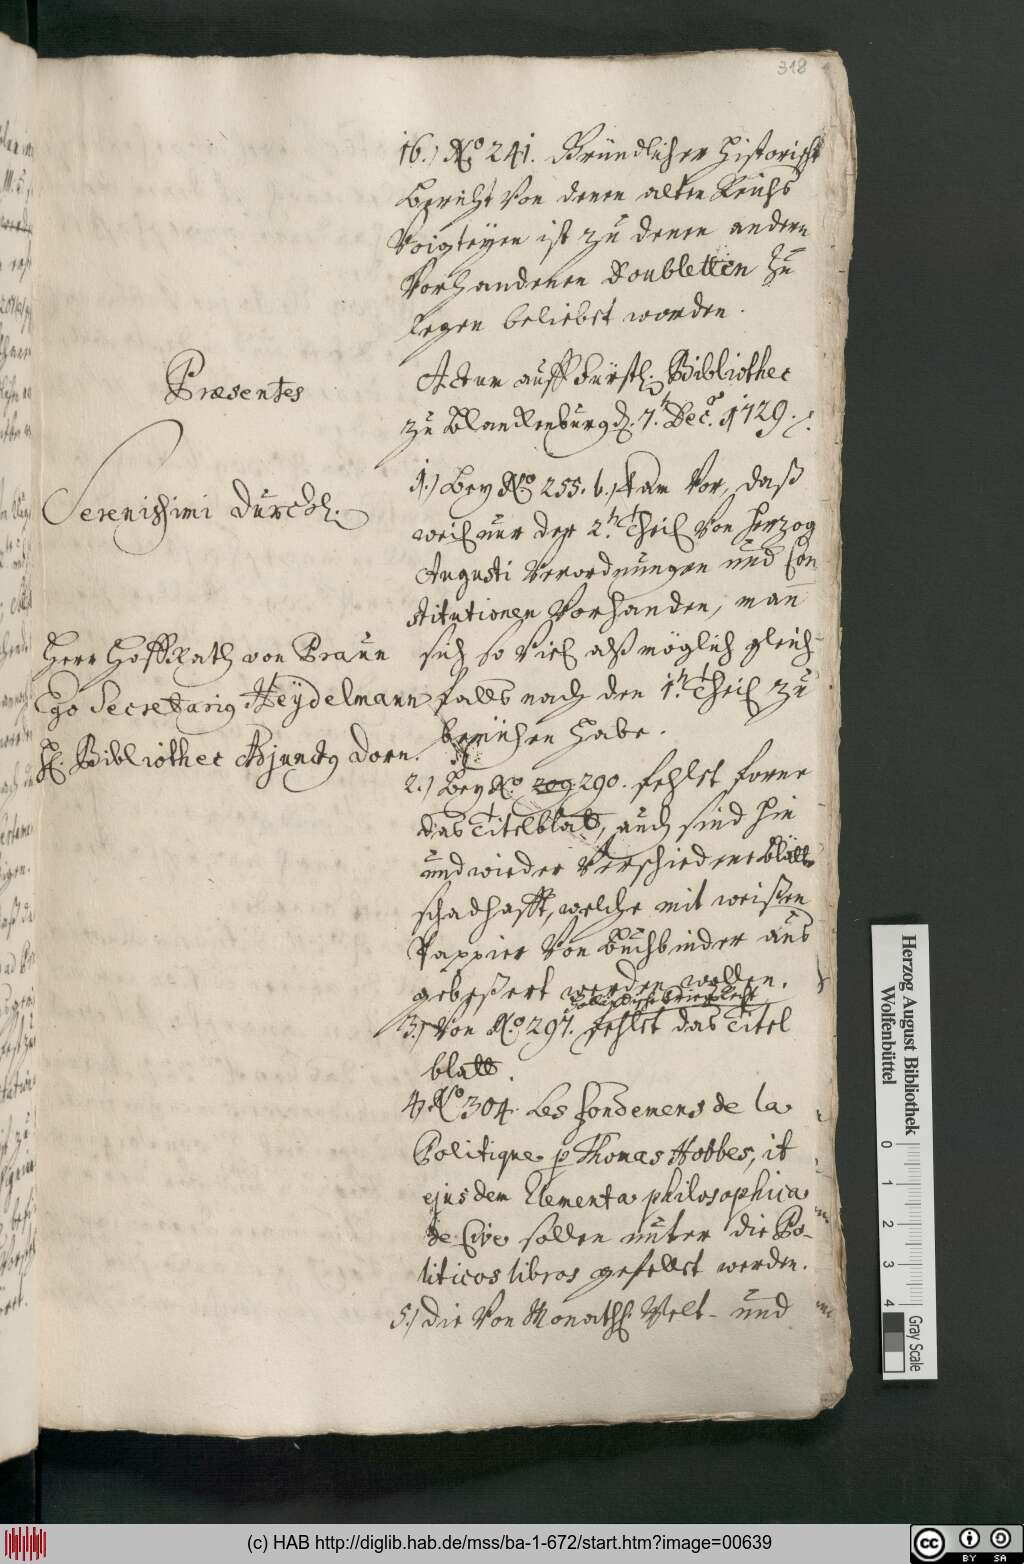 318
16.) No. 241. Gründlicher Historischr
Bericht von denen alten Reichs
Voigteyen ist zu denen andern
vorhandenen Doubletten zu
legen beliebet worden.
Præsentes
Actum auff Fürstl. Bibliothec
zu Blanckenburg d. 7t Dec. 1729.
Serenissimi Durchl.
Herr Hoff Rath von Praun
Ego Secretarius Heydelmann
H. Bibliothec Adjunctus Dorn.
1.) Bey No. 255. b. kam vor, daß
weil nur der 2te Theil von Herzog
Augusti Verordnungen und Con
stitutionen vorhanden, man
sich so viel alß möglich gleich
falls nach den 1ten Theil zu
bemühen habe.
2.) Bey No. 290. fehlet forne
das Titelblatt, auch sind hin
und wieder verschiedene Blätter
schadhafft, welche mit weißen
Pappier von Buchbinder aus
gebeßert werden sollen.
3.) Von No. 297. fehlet das Titel
blatt.
4) No 304. Les fondemens de la
Politique p Thomas Hobbes, it
ejusdem Elementa philosophica
de Cive sollen unter die Po-
liticos libros gestellet werden.
5.) die von Monathl. Welt- und
Herzog August Bibliothek
Wolfenbüttel
0 1 2 3 4
Gray Scale
(c) HAB http://diglib.hab.de/mss/ba-1-672/start.htm?image=00639
cc BY SA